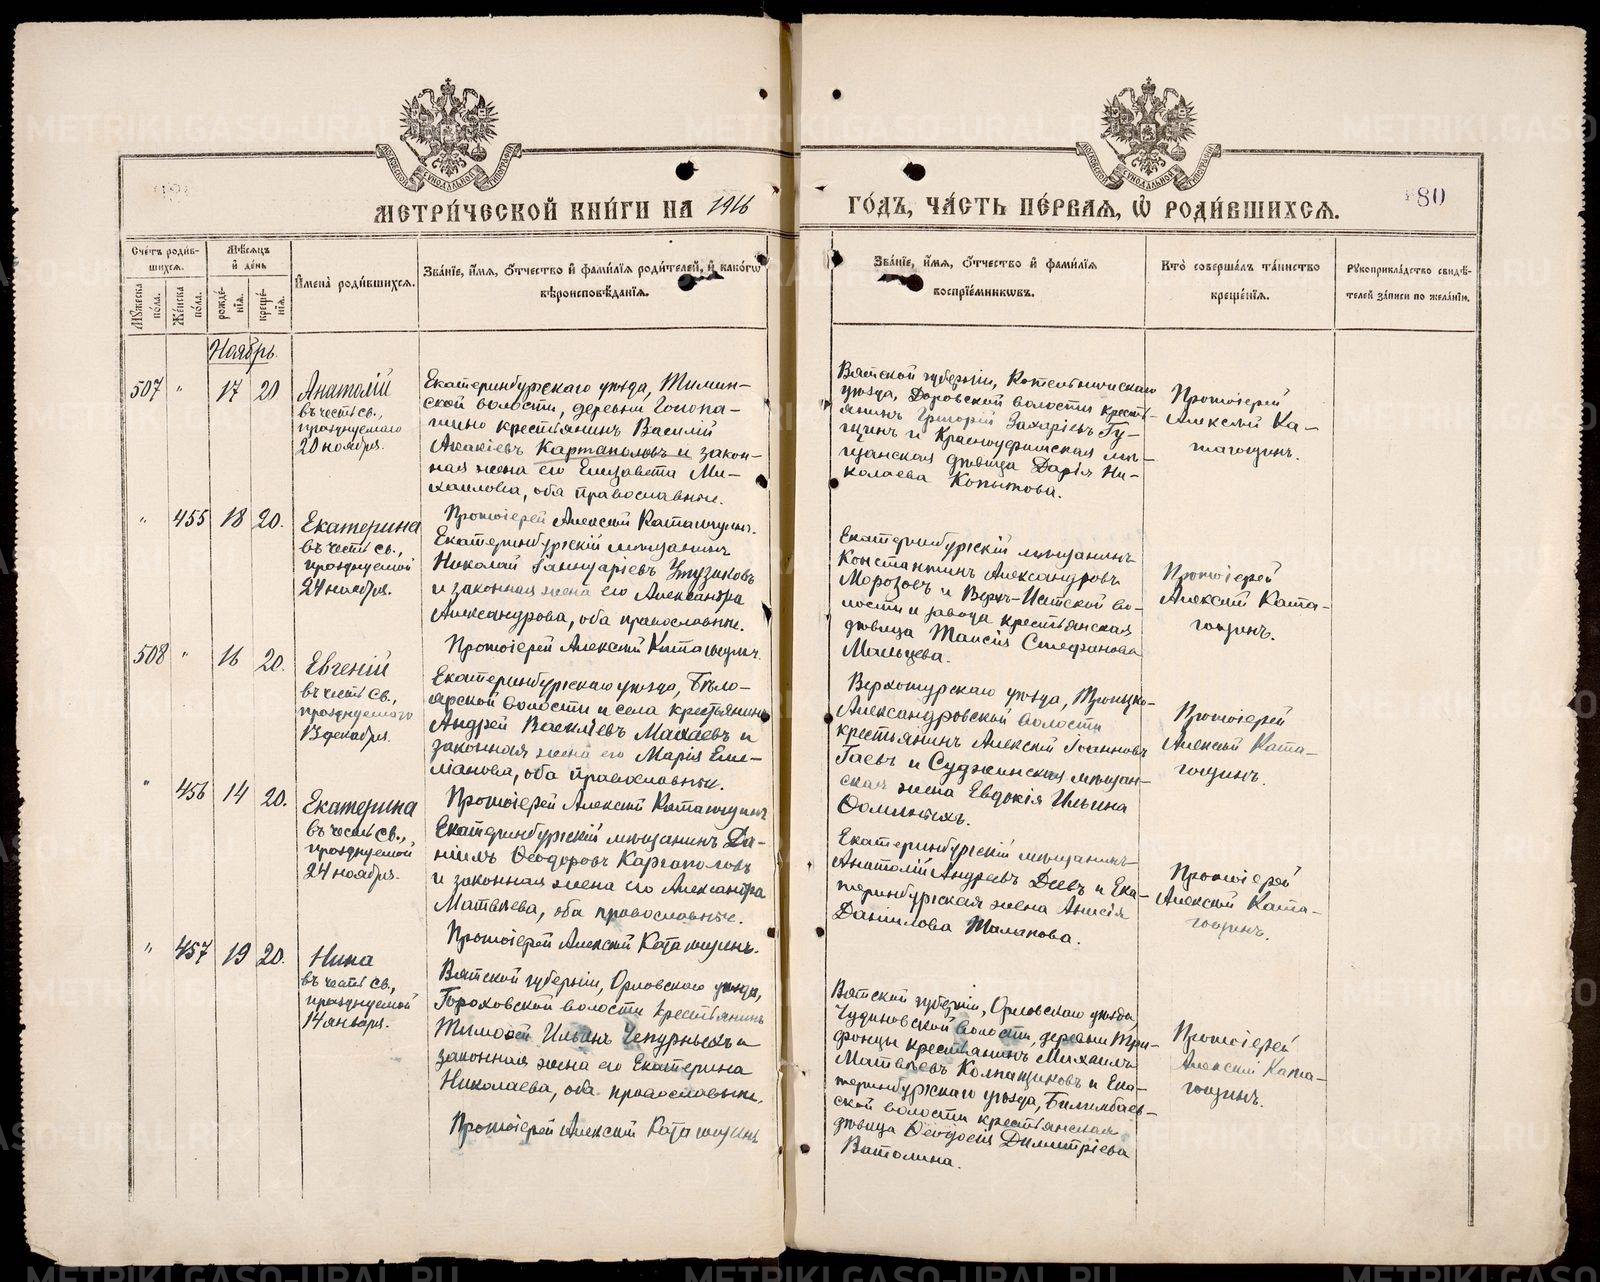 МЕТРИ́ЧЕСКОЙ КНИ́ГИ НА 1916
ГО́ДЪ, ЧА́СТЬ ПЕ́РВАЯ, Ѡ҆ РОДИ́ВШИХСЯ.
80
Сче́тъ роди́в-
шихся.
Му́жеска
по́ла.
Же́нска
по́ла.
Мѣ́сяцъ
и҆ де́нь
рожде́-
нія.
креще́-
нія.
И҆мена̀ роди́вшихся.
Зва́ніе, и҆́мя, ѻ҆́тчество и҆ фами́лія роди́телей, и҆ како́гѡ
вѣроисповѣ́данія.
Зва́ніе, и҆́мя, ѻ҆́тчество и҆ фами́лія
воспріе́мникѡвъ.
Кто̀ соверша́лъ та́инство
креще́нія.
Рꙋкоприкла́дство свидѣ́-
телей за́писи по жела́нію.
Ноябрь.
507 " 17 20
Анатолій
въ честь св.,
празднуемаго
20 ноября.
Екатеринбургскаго уѣзда,
ской волости, деревни
крестьянинъ Василій
Акакіевъ Картаполовъ и закон-
ная жена его Елизавета Ми-
хаилова, оба православные.
Протоіерей Алексій Каташицинъ.
Вятской губерніи, Котельническаго
уѣзда, Даровской волости кресть-
янинъ Григорій Захаріевъ Гу-
щинъ и Красноуфимская мѣ-
щанская дѣвица Дарія Ни-
колаева Копытова.
Протоіерей
Алексій Ка-
" 455 18 20.
Екатерина
въ честь св.,
празднуемой
24 ноября.
Екатеринбургскій мѣщанинъ
Николай Іаннуаріевъ
и законная жена его Александра
Александрова, оба православные.
Протоіерей Алексій
Екатеринбургскій мѣщанинъ
Константинъ Александровъ
Морозовъ и Верхъ-Исетской во-
лости и завода крестьянская
дѣвица Таисія Стефанова
Мальцева.
Протоіерей
Алексій Ката-
508 " 16 20.
Евгеній
въ честь св.,
празднуемаго
13 декабря.
Екатеринбургскаго уѣзда, Бѣло-
ярской волости и села крестьянинъ
Андрей Васильевъ Махаевъ и
законная жена его Марія Еми-
ліанова, оба православные.
Протоіерей Алексій
Верхотурскаго уѣзда, Троицко-
Александровской волости
крестьянинъ Алексій Іоанновъ
Гаевъ и Суджинская мѣщан-
ская жена Евдокія Ильина
Протоіерей
Алексій Ката-
" 456 14 20.
Екатерина
въ честь св.,
празднуемой
24 ноября.
Екатеринбургскій мѣщанинъ Да-
ніилъ Ѳеодоровъ Каргаполовъ
и законная жена его Александра
Матвѣева, оба православные.
Протоіерей Алексій
Екатеринбургскій мѣщанинъ
Анатолій Андреевъ Деевъ и Ека-
теринбургская жена Анисія
Данилова Малахова.
Протоіерей
Алексій Ката-
" 457 19 20.
Нина
въ честь св.,
празднуемой
14 января.
Вятской губерніи, Орловскаго уѣзда,
Гороховской волости крестьянинъ
Тимоѳей Ильинъ Чепурныхъ и
законная жена его Екатерина
Николаева, оба православные.
Протоіерей Алексій
Вятской губерніи, Орловскаго уѣзда,
Чудиновской волости, деревни Три-
фонцы крестьянинъ Михаилъ
Матвѣевъ Колпащиковъ и Ека-
теринбургскаго уѣзда, Билимбаев-
ской волости крестьянская
дѣвица Ѳеодосія Димитріева
Ватолина.
Протоіерей
Алексій Ката-
METRIKI.GASO-URAL.RU